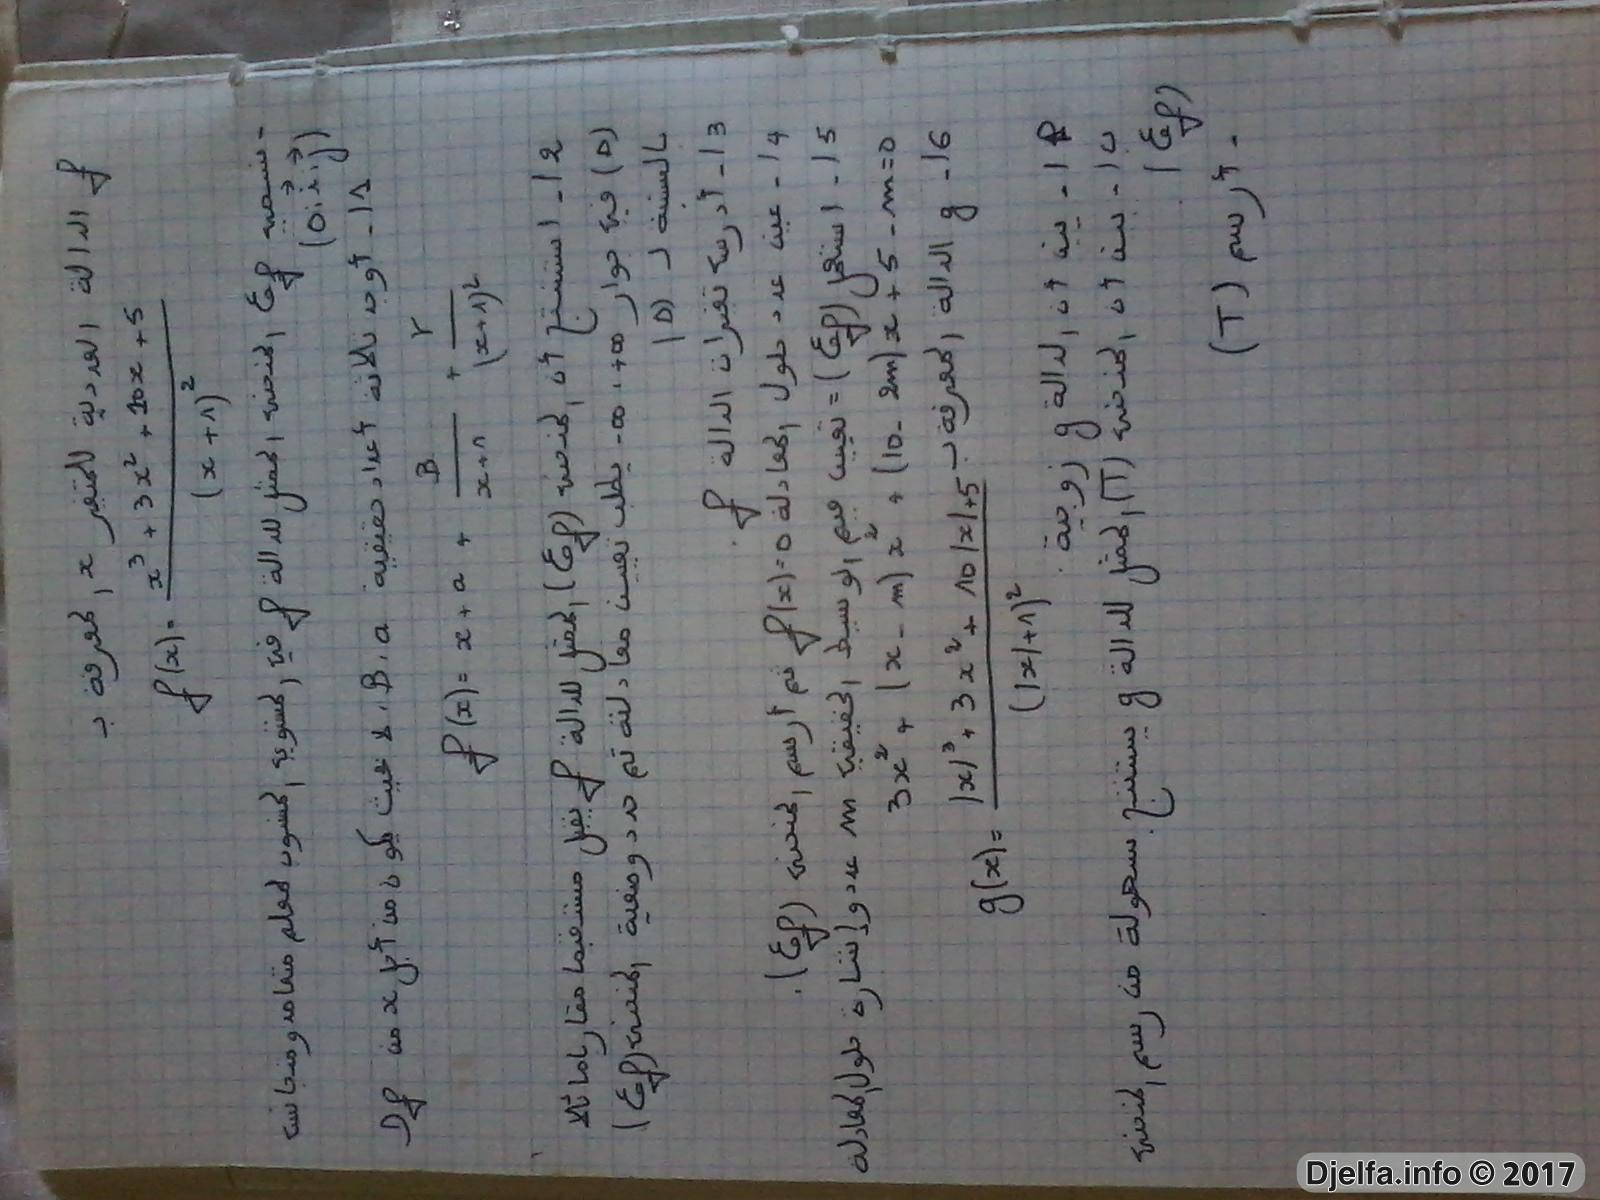 f الدالة العددية للمتغير x المعرفة ب
f(x) = x³ + 3x² + 10x + 5 / (x + 1)²
نسمي Cf المنحنى الممثل للدالة f في المستوي المنسوب لمعلم متعامد ومتجانس
(O, i, j)
1/ - أوجد ثلاثة أعداد حقيقية a، B، γ بحيث يكون من أجل x من Df
f(x) = x + a + B / x+1 + γ / (x+1)²
2/ - استنتج أن المنحنى (Cf) الممثل للدالة f يقبل مستقيما مقاربا مائلا
(D) في جوار +∞، -∞ يطلب تعيين معادلته ثم حدد وضعية المنحنى (Cf)
بالنسبة لـ (D)
3/ - أدرس تغيرات الدالة f.
4/ - عين عدد حلول المعادلة f(x) = 0 ثم أرسم المنحنى (Cf).
5/ - استعمل (Cf) = تعيين قيم الوسيط الحقيقي m عدد وإشارة حلول المعادلة
3x² + (x - m)x² + (10 - 2m)x + 5 - m = 0
6/ - g الدالة المعرفة ب
g(x) = |x|³ + 3x² + 10|x| + 5 / (|x| + 1)²
أ/ - بين أن الدالة g زوجية.
ب/ - بين أن المنحنى (T) الممثل للدالة g يستنتج بسهولة من رسم المنحنى
(Cf)
- أرسم (T)
Djelfa.info © 2017